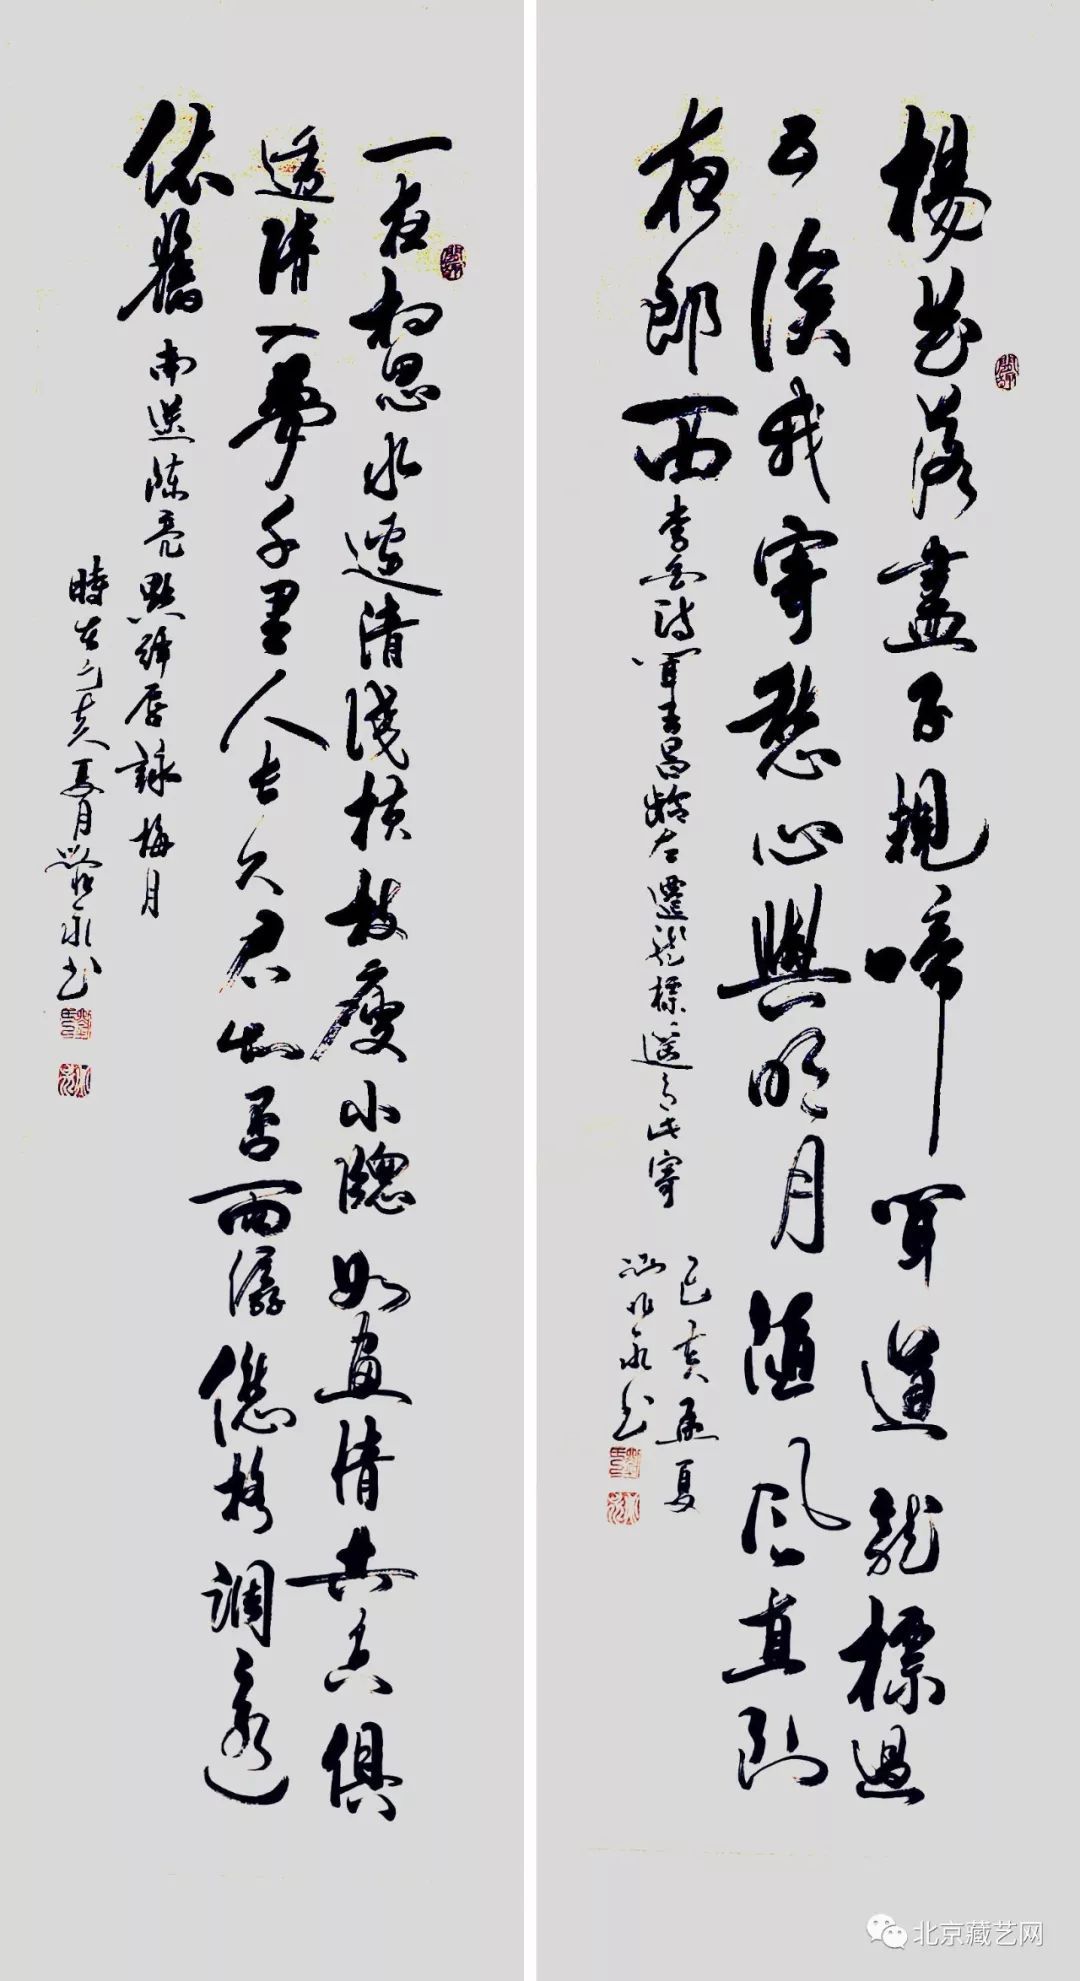 楊花落盡子規啼聞道龍標過
五溪我寄愁心與明月隨風直到
夜郎西
李白詩聞王昌齡左遷龍標遥有此寄
己亥孟夏
永书
一夜相思水邊清淺橫枝瘦小牕如畫情共香俱
透清入夢千里人長久君知否雨僝僽格調還
依舊
南宋陳亮點絳唇詠梅月
時在己亥夏月永书
北京藏艺网